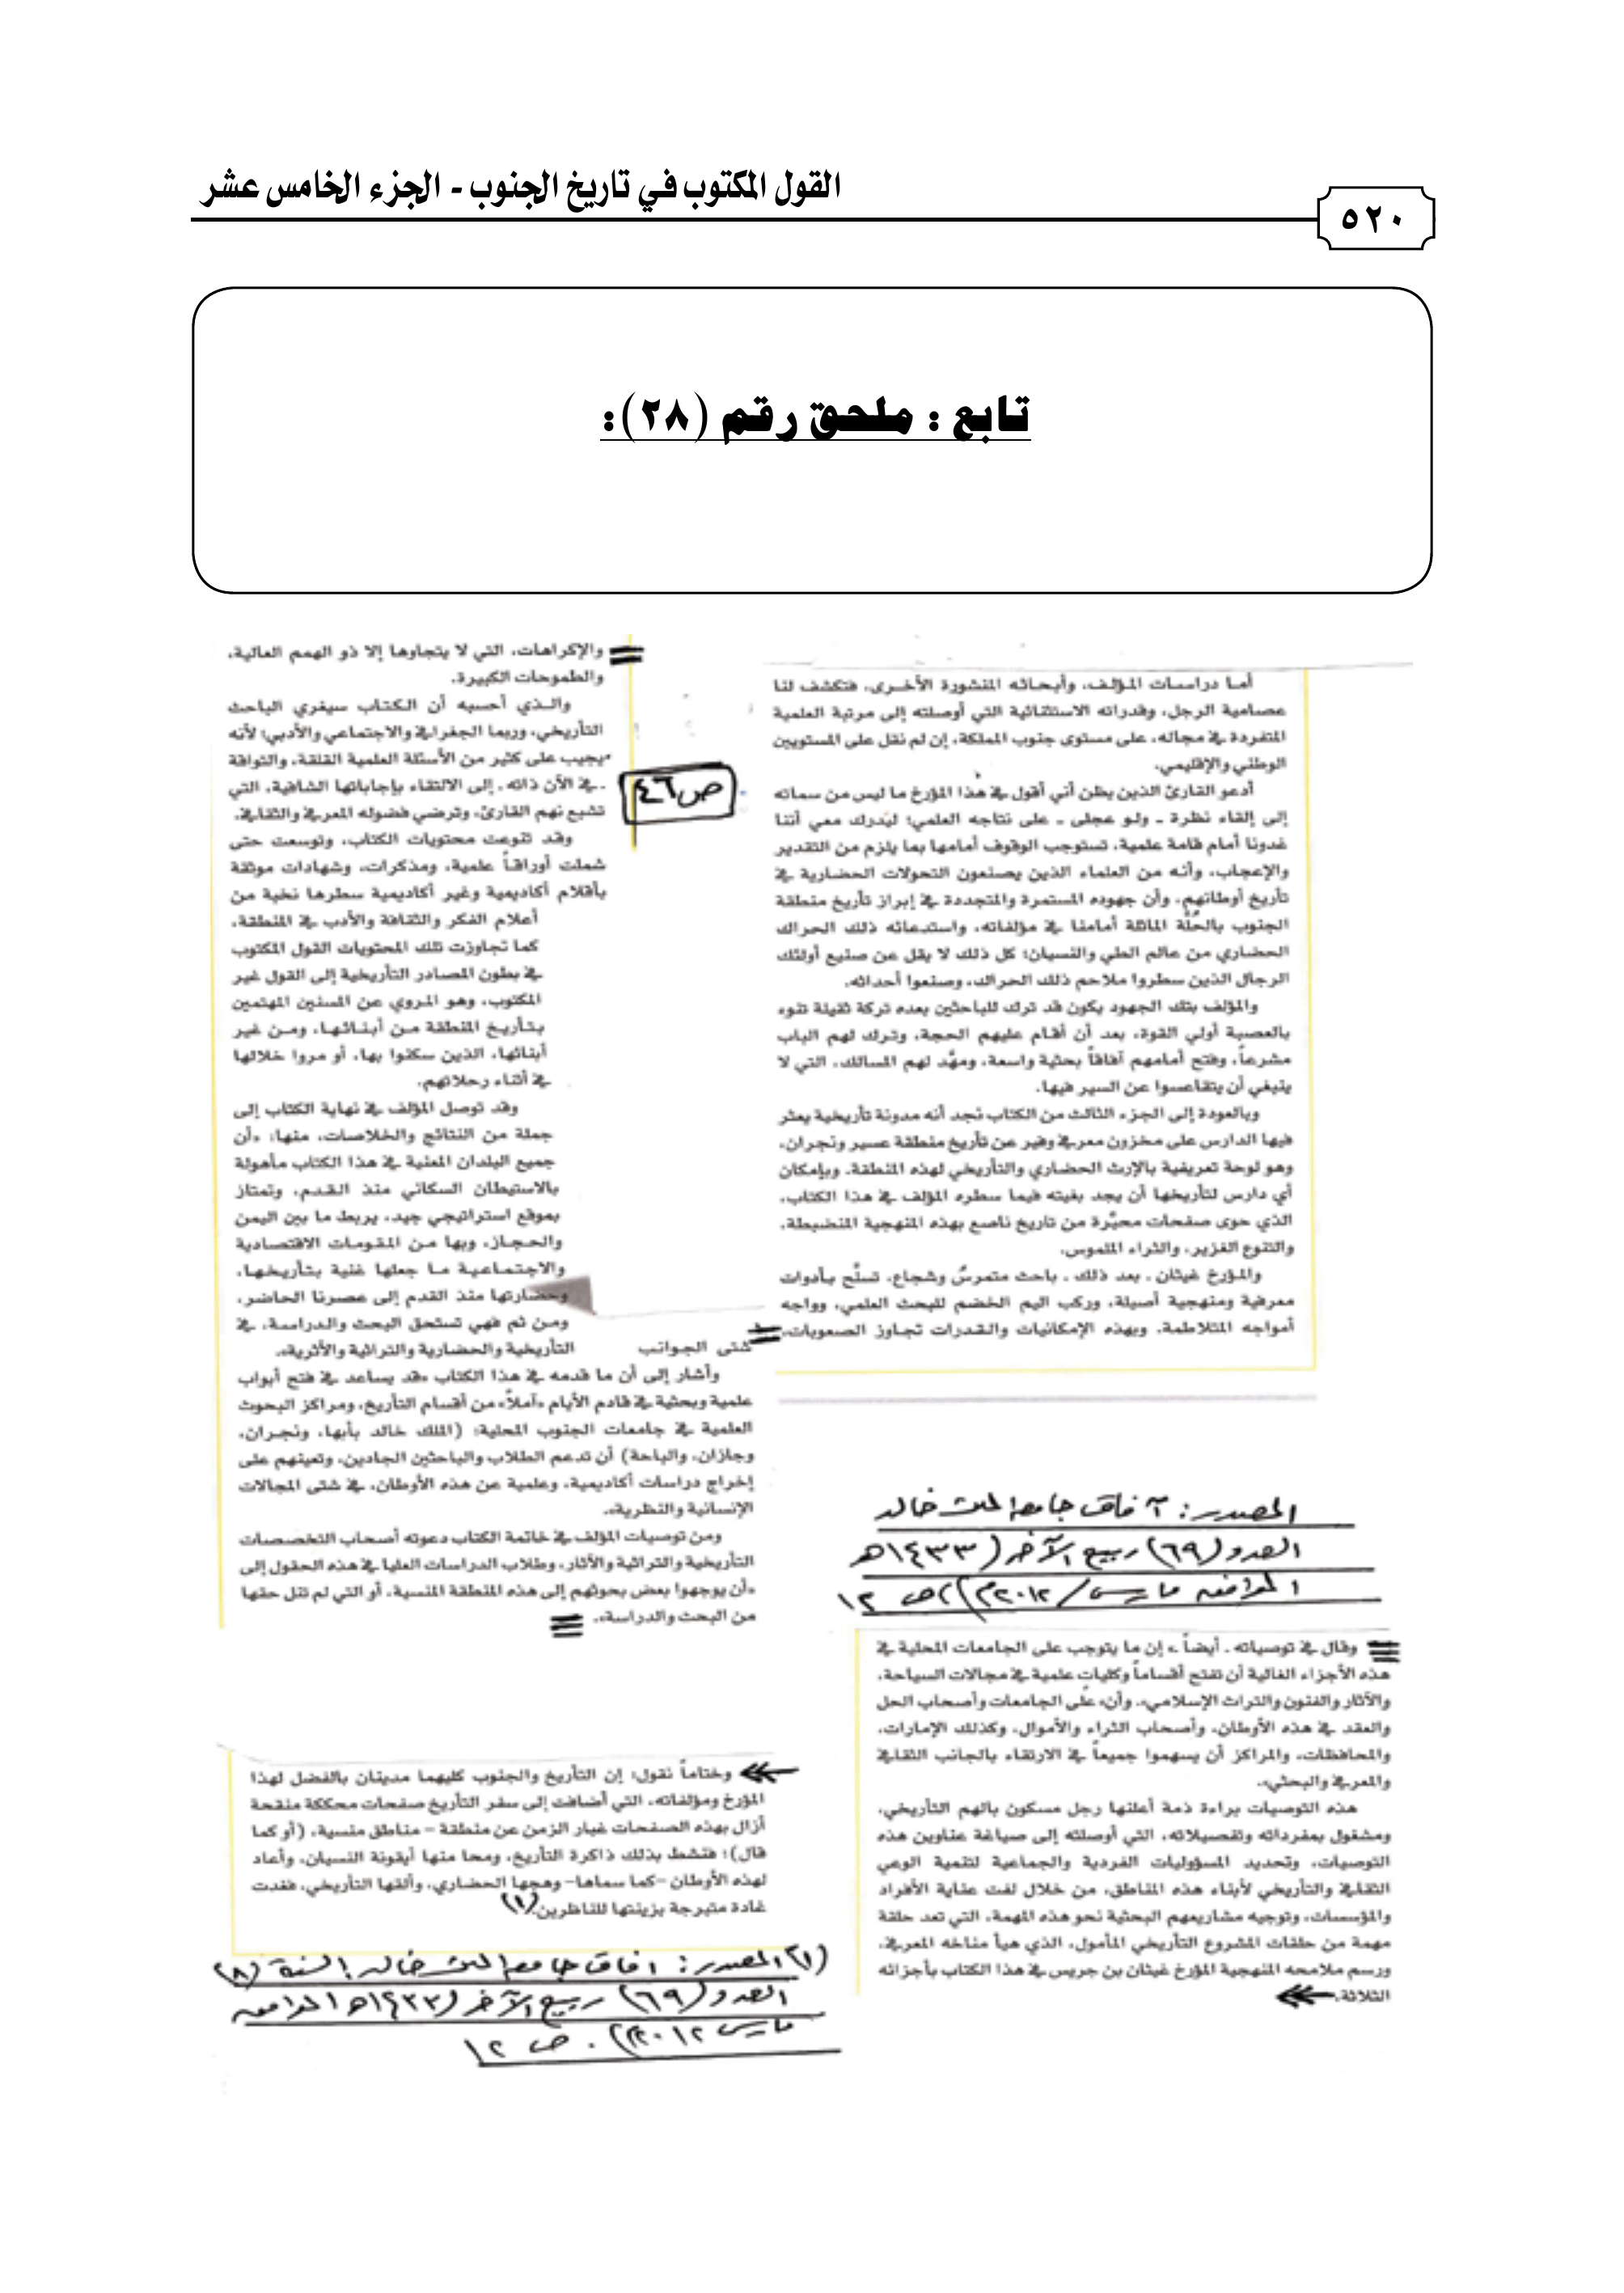 القول المكتوب في تاريخ الجنوب - الجزء الخامس عشر
٥٢٠
تابع : ملحق رقم (٢٨):
أما دراسات المؤلف، وأبحاثه المنشورة الأخرى، فتكشف لنا
عصامية الرجل، وقدراته الاستثنائية التي أوصلته إلى مرتبة العلمية
المتفردة في مجاله، على مستوى جنوب المملكة، إن لم نقل على المستويين
الوطني والإقليمي.
أدعو القارئ الذين يظن أني أقول في هذا المؤرخ ما ليس من سماته
إلى إلقاء نظرة ـ ولو عجلى ـ على نتاجه العلمي؛ ليَدرك معي أننا
غدونا أمام قامة علمية، تستوجب الوقوف أمامها بما يلزم من التقدير
والإعجاب، وأنه من العلماء الذين يصنعون التحولات الحضارية في
تأريخ أوطانهم، وأن جهوده المستمرة والمتجددة في إبراز تأريخ منطقة
الجنوب بالحُلَّة الماثلة أمامنا في مؤلفاته، واستدعائه ذلك الحراك
الحضاري من عالم الطي والنسيان؛ كل ذلك لا يقل عن صنيع أولئك
الرجال الذين سطروا ملاحم ذلك الحراك، وصنعوا أحداثه.
والمؤلف بتك الجهود يكون قد ترك للباحثين بعده تركة ثقيلة تنوء
بالعصبة أولي القوة، بعد أن أقام عليهم الحجة، وترك لهم الباب
مشرعاً، وفتح أمامهم آفاقاً بحثية واسعة، ومهَّد لهم المسالك، التي لا
ينبغي أن يتقاعسوا عن السير فيها.
وبالعودة إلى الجزء الثالث من الكتاب نجد أنه مدونة تأريخية يعثر
فيها الدارس على مخزون معرفي وفير عن تأريخ منطقة عسير ونجران،
وهو لوحة تعريفية بالإرث الحضاري والتأريخي لهذه المنطقة. وبإمكان
أي دارس لتأريخها أن يجد بغيته فيما سطره المؤلف في هذا الكتاب،
الذي حوى صفحات محبَّرة من تاريخ ناصع بهذه المنهجية المنضبطة،
والتنوع الغزير، والثراء الملموس.
والمؤرخ غيثان ـ بعد ذلك ـ باحث متمرسٌ وشجاع، تسلَّح بأدوات
معرفية ومنهجية أصيلة، وركب اليم الخضم للبحث العلمي، وواجه
أمواجه المتلاطمة. وبهذه الإمكانيات والقدرات تجاوز الصعوبات،
والإكراهات، التي لا يتجاوها إلا ذو الهمم العالية،
والطموحات الكبيرة.
والذي أحسبه أن الكتاب سيغري الباحث
التأريخي، وربما الجغرافي والاجتماعي والأدبي؛ لأنه
يجيب على كثير من الأسئلة العلمية القلقة، والتواقة
ـ في الآن ذاته ـ إلى الالتقاء بإجاباتها الشافية، التي
تشبع نهم القارئ، وترضي فضوله المعرفي والثقافي.
ص٤٦
وقد تنوعت محتويات الكتاب، وتوسعت حتى
شملت أوراقاً علمية، ومذكرات، وشهادات موثقة
بأقلام أكاديمية وغير أكاديمية سطرها نخبة من
أعلام الفكر والثقافة والأدب في المنطقة،
كما تجاوزت تلك المحتويات القول المكتوب
في بطون المصادر التأريخية إلى القول غير
المكتوب، وهو المروي عن المسنين المهتمين
بتأريخ المنطقة من أبنائها، ومن غير
أبنائها، الذين سكنوا بها، أو مروا خلالها
في أثناء رحلاتهم.
وقد توصل المؤلف في نهاية الكتاب إلى
جملة من النتائج والخلاصات، منها: «أن
جميع البلدان المعنية في هذا الكتاب مأهولة
بالاستيطان السكاني منذ القدم، وتمتاز
بموقع استراتيجي جيد، يربط ما بين اليمن
والحجاز، وبها من المقومات الاقتصادية
والاجتماعية ما جعلها غنية بتأريخها،
وحضارتها منذ القدم إلى عصرنا الحاضر،
ومن ثم فهي تستحق البحث والدراسة، في
شتى الجوانب التأريخية والحضارية والتراثية والأثرية».
وأشار إلى أن ما قدمه في هذا الكتاب «قد يساعد في فتح أبواب
علمية وبحثية في قادم الأيام «آملاً» من أقسام التأريخ، ومراكز البحوث
العلمية في جامعات الجنوب المحلية؛ (الملك خالد بأبها، ونجران،
وجازان، والباحة) أن تدعم الطلاب والباحثين الجادين، وتعينهم على
إخراج دراسات أكاديمية، وعلمية عن هذه الأوطان، في شتى المجالات
الإنسانية والنظرية».
ومن توصيات المؤلف في خاتمة الكتاب دعوته أصحاب التخصصات
التأريخية والتراثية والآثار، وطلاب الدراسات العليا في هذه الحقول إلى
«أن يوجهوا بعض بحوثهم إلى هذه المنطقة المنسية، أو التي لم تنل حقها
من البحث والدراسة».
المصدر: آفاق جامعة الملك خالد
العدد (٦٩) ربيع الآخر (١٤٣٣هـ
الموافق مارس/٢٠١٢م) ص ١٢
وقال في توصياته ـ أيضاً ـ» إن ما يتوجب على الجامعات المحلية في
هذه الأجزاء الغالية أن تفتح أقساماً وكليات علمية في مجالات السياحة،
والآثار والفنون والتراث الإسلامي»، وأن» على الجامعات وأصحاب الحل
والعقد في هذه الأوطان، وأصحاب الثراء والأموال، وكذلك الإمارات،
والمحافظات، والمراكز أن يسهموا جميعاً في الارتقاء بالجانب الثقافي
والمعرفي والبحثي».
هذه التوصيات براءة ذمة أعلنها رجل مسكون بالهم التأريخي،
ومشغول بمفرداته وتفصيلاته، التي أوصلته إلى صياغة عناوين هذه
التوصيات، وتحديد المسؤوليات الفردية والجماعية لتنمية الوعي
الثقافي والتأريخي لأبناء هذه المناطق، من خلال لفت عناية الأفراد
والمؤسسات، وتوجيه مشاريعهم البحثية نحو هذه المهمة، التي تعد حلقة
مهمة من حلقات المشروع التأريخي المأمول، الذي هيأ مناخه المعرفي،
ورسم ملامحه المنهجية المؤرخ غيثان بن جريس في هذا الكتاب بأجزائه
الثلاثة.
وختاماً نقول: إن التأريخ والجنوب كليهما مدينان بالفضل لهذا
المؤرخ ومؤلفاته، التي أضافت إلى سفر التأريخ صفحات محككة منقحة
أزال بهذه الصفحات غبار الزمن عن منطقة – مناطق منسية، (أو كما
قال)؛ فنشط بذلك ذاكرة التأريخ، ومحا منها أيقونة النسيان، وأعاد
لهذه الأوطان –كما سماها– وهجها الحضاري، وألقها التأريخي، فغدت
غادة متبرجة بزينتها للناظرين.(١)
(١) المصدر: آفاق جامعة الملك خالد. السنة (٨)
العدد (٦٩) ربيع الآخر (١٤٣٣هـ الموافق
مارس ٢٠١٢م) . ص ١٢